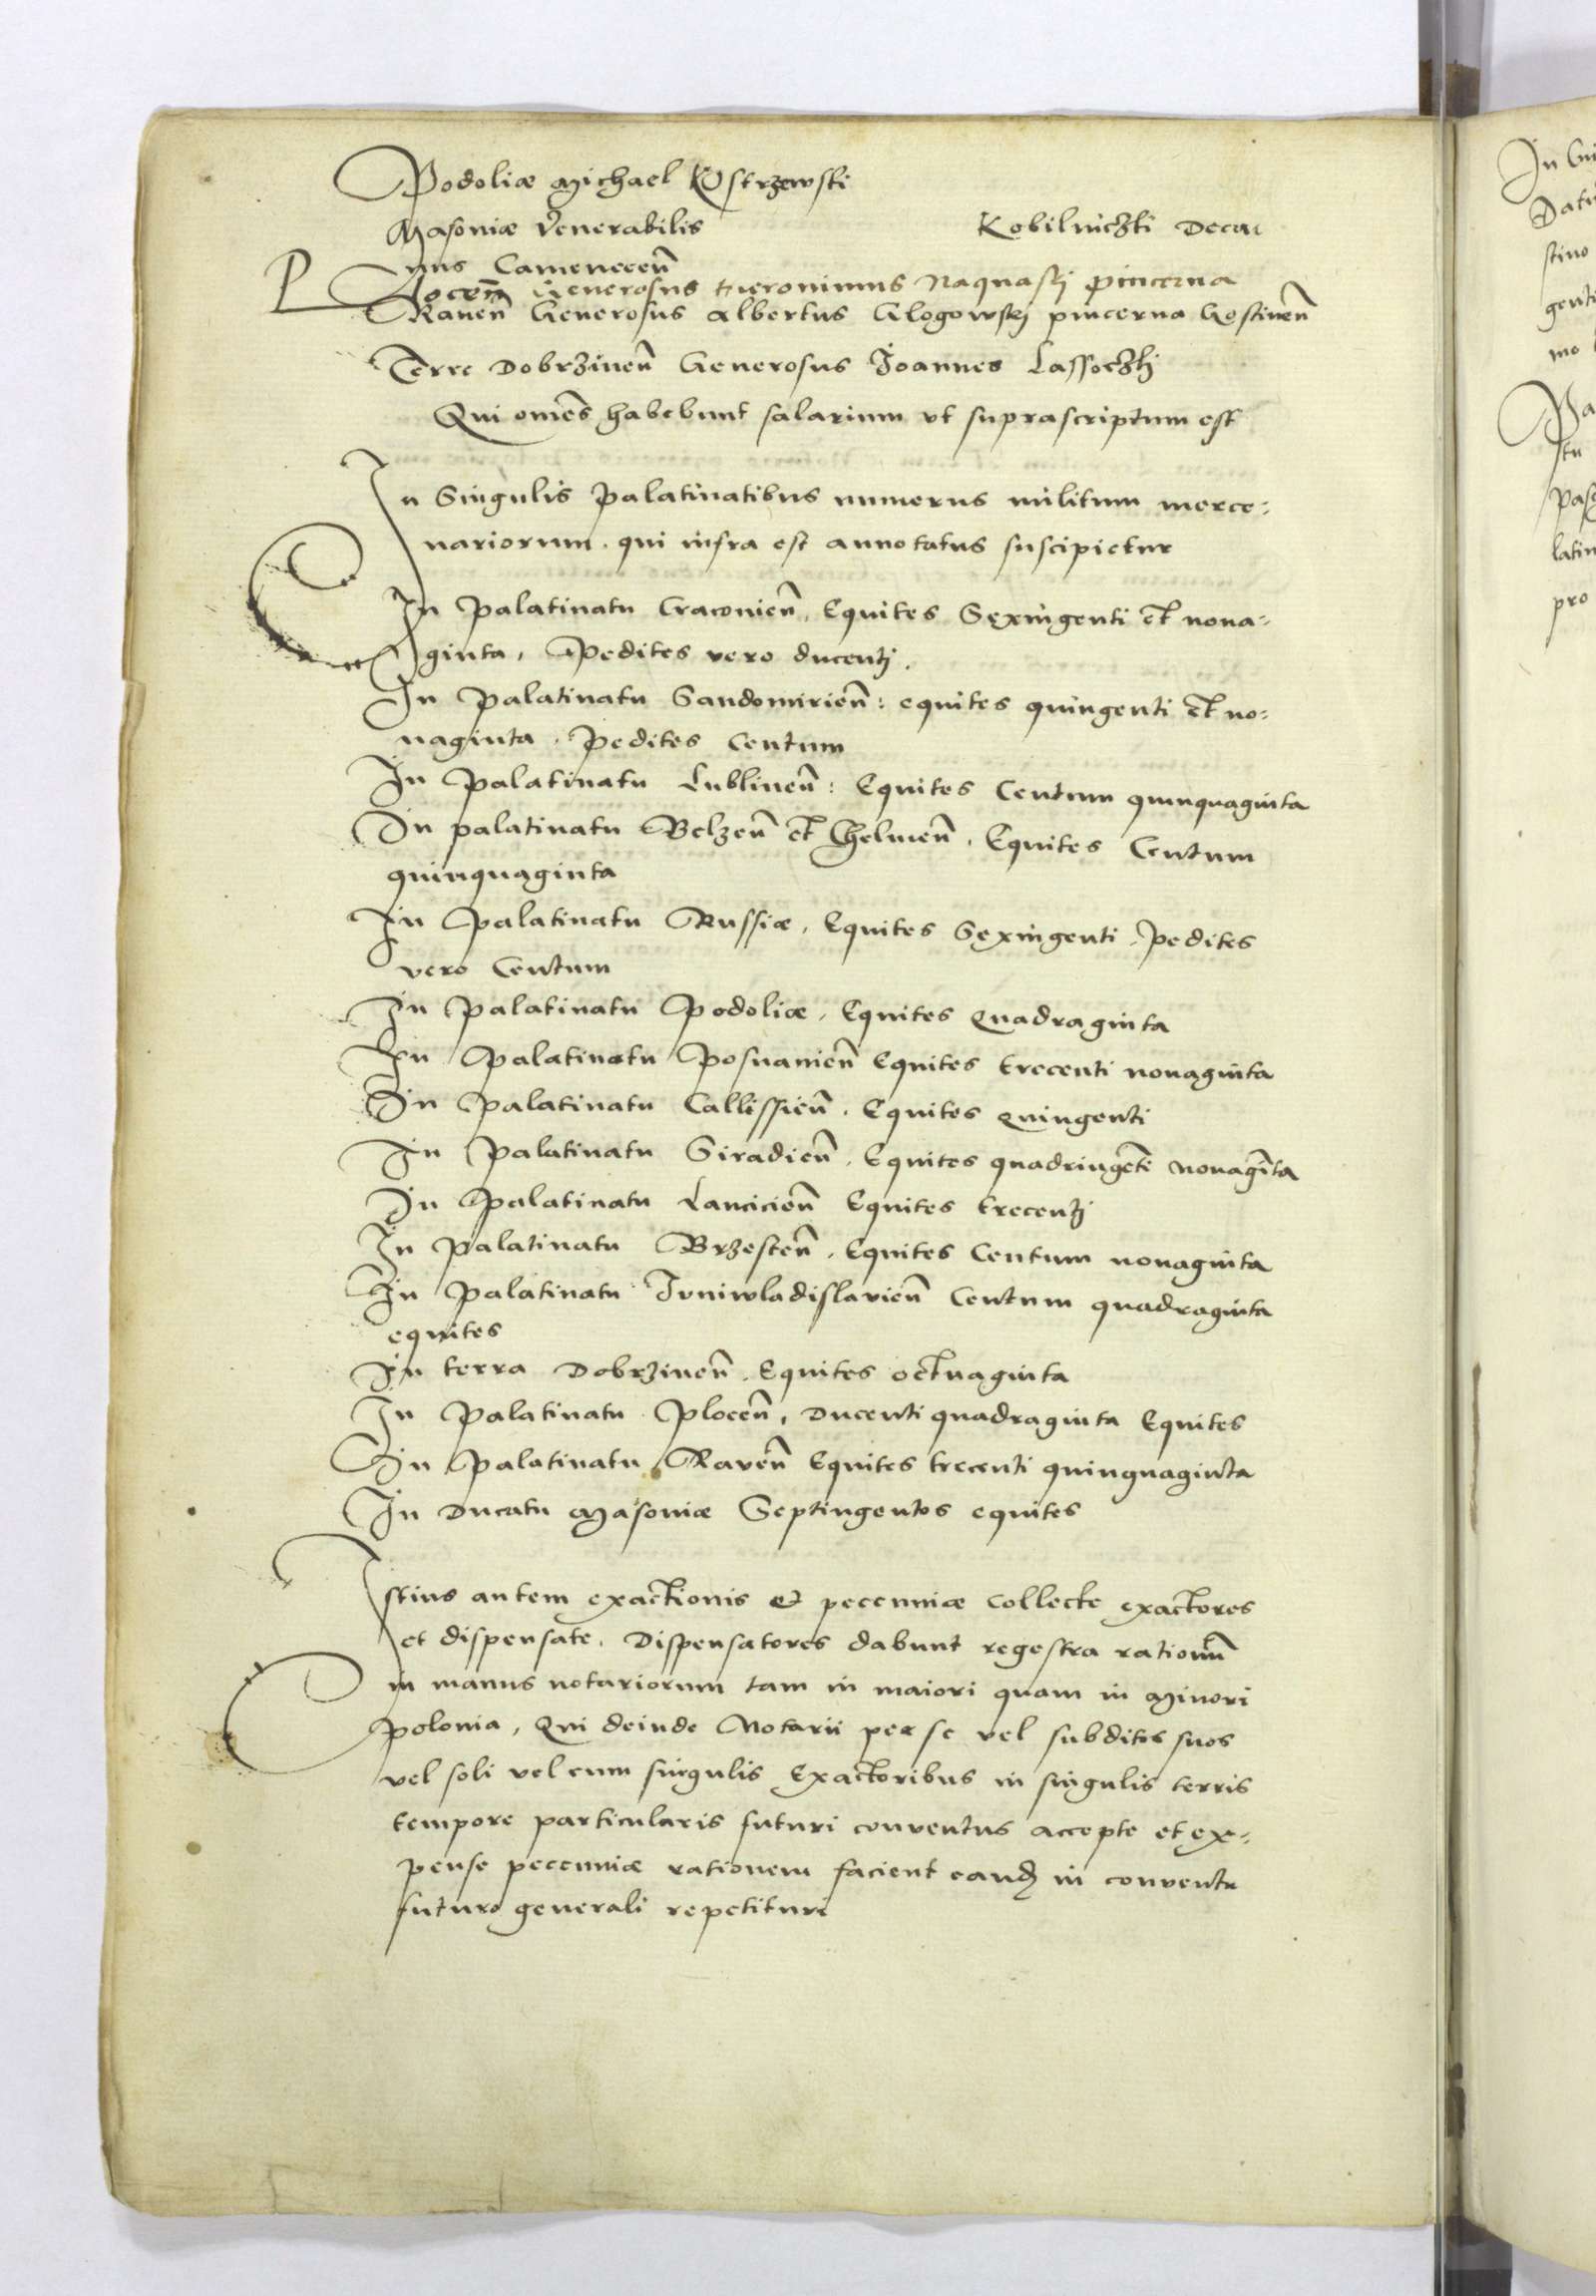 Podoliæ Michael Ostrzewski
Masoniæ Venerabilis Kobilniczki Deca
nus Camenecen̄
Plocen̄ Generosus Hieronimus Naquaski pincerna
Raven̄ Generosus Albertus Glogowski pincerna Gostinen̄
Terre Dobrzinen̄ Generosus Joannes Lassoczki
Qui om̄es habebunt salarium ut suprascriptum est
In Singulis Palatinatibus numerus militum merce:
nariorum. qui infra est annotatus suscipietur
In Palatinatu Cracovien̄, Equites Sexingenti et nona-
ginta, Pedites vero ducenti.
In Palatinatu Sandomirien̄: equites quingenti et no:
naginta. Pedites Centum
In Palatinatu Lublinen̄: Equites Centum quinquaginta
In palatinatu Belzen̄ et Chelmen̄. Equites Centum
quinquaginta
In Palatinatu Russiæ, Equites Sexingenti. Pedites
vero Centum
In Palatinatu Podoliæ, Equites Quadraginta
In Palatinatu Posnanien̄ Equites trecenti nonaginta
In Palatinatu Callissien̄. Equites Quingenti
In Palatinatu Siradien̄. Equites quadringēti nonagīta
In Palatinatu Lancicien̄ Equites trecenti
In Palatinatu Brzesten̄. Equites Centum nonaginta
In Palatinatu Iuniwladislavien̄ Centum quadraginta
equites
In terra Dobrzinen̄. Equites octuaginta
In Palatinatu Plocen̄, Ducenti quadraginta Equites
In Palatinatu Raven̄ Equites trecenti quinquaginta
In Ducatu Masoviæ Septingentos equites
Istius autem exactionis et pecuniæ collecte exactores
et dispensate. Dispensatores dabunt regestra rationū
in manus notariorum tam in maiori quam in Minori
Polonia, Qui deinde Notarii per se vel subditos suos
vel soli vel cum singulis Exactoribus in singulis terris
tempore particularis futuri conventus accepte et ex-
pense pecuniæ rationem facient eand in conventu
futuro generali repetituri